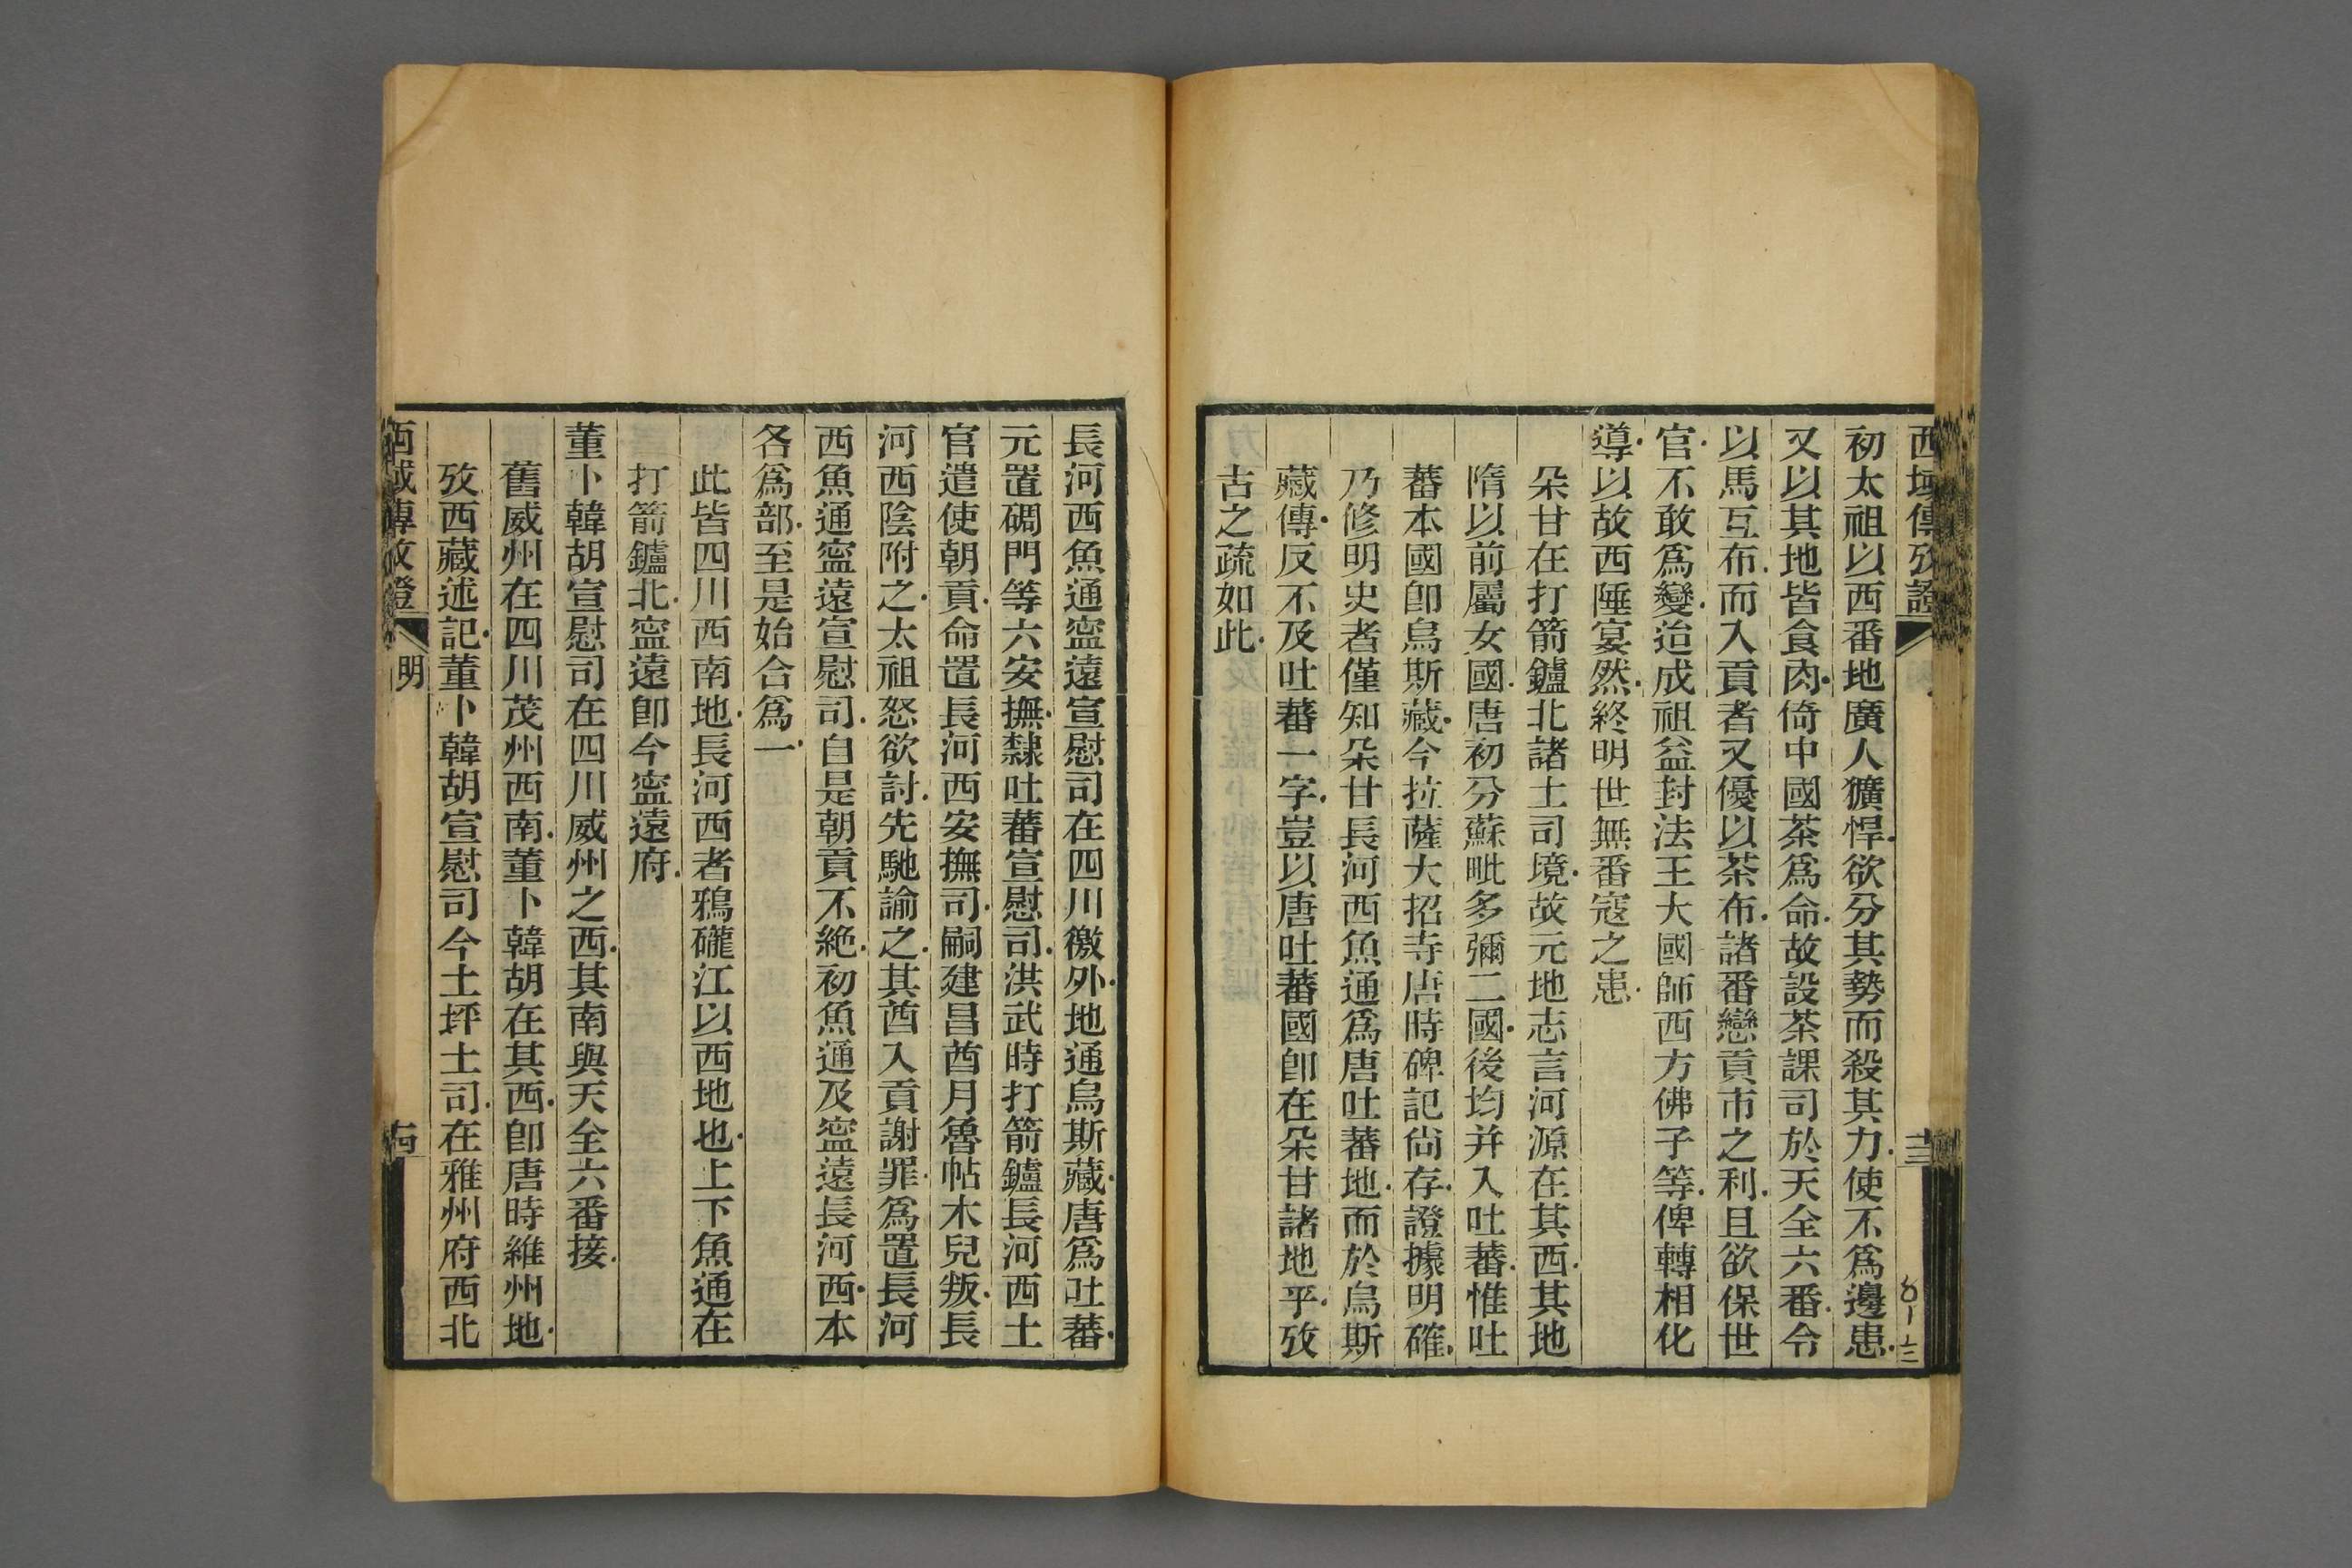 西域傳攷證
十三
初太祖以西番地廣人獷悍欲分其勢而殺其力使不爲邊患
又以其地皆食肉倚中國茶爲命故設茶課司於天全六番令
以馬互布而入貢者又優以茶布諸番戀貢市之利且欲保世
官不敢爲變迨成祖益封法王大國師西方佛子等俾轉相化
導以故西陲宴然終明世無番寇之患
朵甘在打箭鑪北諸土司境故元地志言河源在其西其地
隋以前屬女國唐初分蘇毗多彌二國後均并入吐蕃惟吐
蕃本國卽烏斯藏今拉薩大招寺唐時碑記尙存證據明確
乃修明史者僅知朵甘長河西魚通爲唐吐蕃地而於烏斯
藏傳反不及吐蕃一字豈以唐吐蕃國卽在朵甘諸地乎攷
古之疏如此
長河西魚通寍遠宣慰司在四川徼外地通烏斯藏唐爲吐蕃
元置碉門等六安撫隸吐蕃宣慰司洪武時打箭鑪長河西土
官遣使朝貢命置長河西安撫司嗣建昌酋月魯帖木兒叛長
河西陰附之太祖怒欲討先馳諭之其酋入貢謝罪爲置長河
西魚通寍遠宣慰司自是朝貢不絶初魚通及寍遠長河西本
各爲部至是始合爲一
此皆四川西南地長河西者鴉礲江以西地也上下魚通在
打箭鑪北寍遠卽今寍遠府
董卜韓胡宣慰司在四川威州之西其南與天全六番接
舊威州在四川茂州西南董卜韓胡在其西卽唐時維州地
攷西藏述記董卜韓胡宣慰司今土坪土司在雅州府西北
西域傳攷證
明